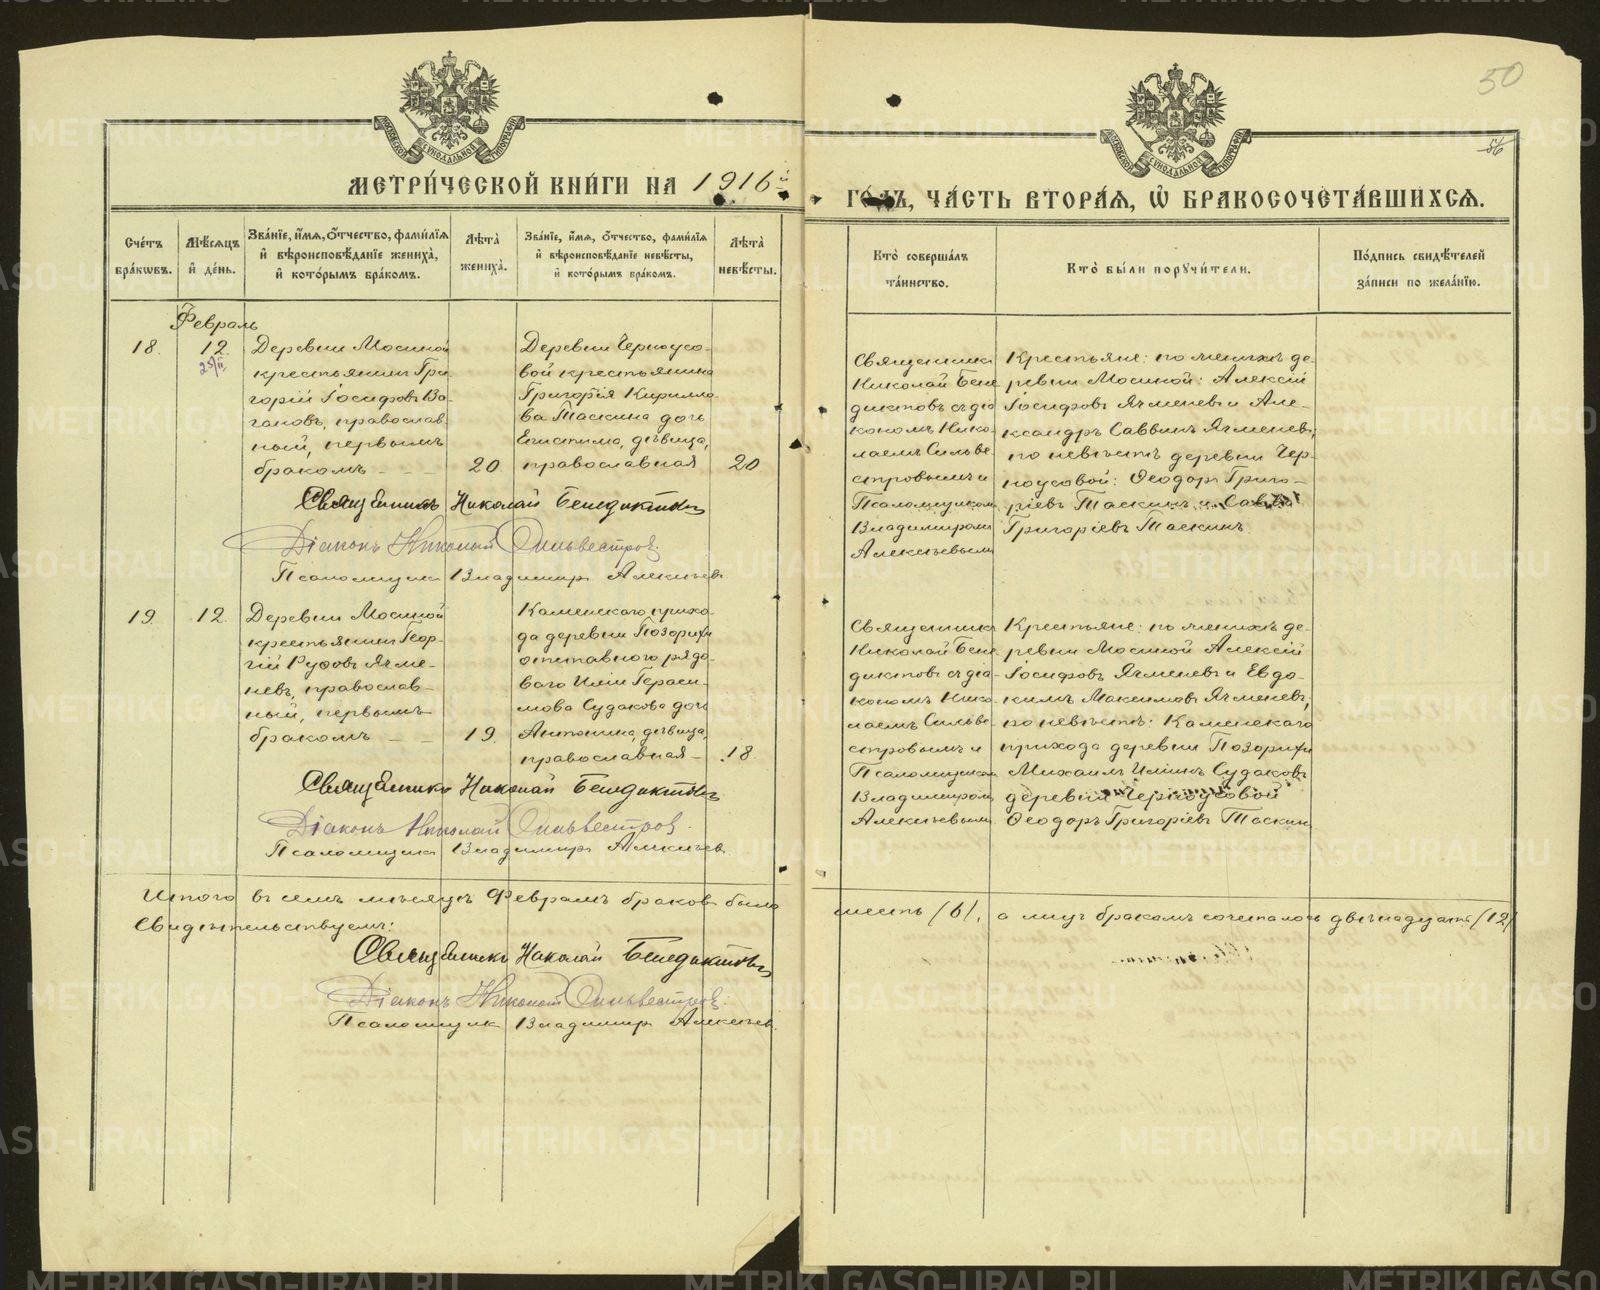 50
56
МЕТРИЧЕСКОЙ КНИГИ НА 1916й
ГОДЪ, ЧАСТЬ ВТОРАЯ, Ѡ БРАКОСОЧЕТАВШИХСЯ.
Счетъ браковъ.
Мѣсяцъ и день.
Званіе, имя, отчество, фамилія и вѣроисповѣданіе жениха, и которымъ бракомъ.
Лѣта жениха.
Званіе, имя, отчество, фамилія и вѣроисповѣданіе невѣсты, и которымъ бракомъ.
Лѣта невѣсты.
Кто совершалъ таинство.
Кто были поручители.
Подпись свидѣтелей записи по желанію.
Февраль
18.
12.
25/II
Деревни Мосиной
крестьянинъ Гри
горій Іосифовъ Ва-
гановъ, православ
ный, первымъ
бракомъ
20
Деревни Черноусо-
вой крестьянина
Григорія Кирилло-
ва Таскина дочь
Епистима, дѣвица,
православная
20
Священникъ
Николай Бене
диктовъ съ діа
кономъ Нико-
лаемъ Сильве-
стровымъ и
Псаломщикомъ
Владимиромъ
Алексѣевымъ
Крестьяне: по женихѣ де-
ревни Мосиной: Алексій
Іосифовъ Ячменевъ и Але-
ксандръ Саввинъ Ячменевъ;
по невѣстѣ деревни Чер-
ноусовой: Ѳеодоръ Григо-
ріевъ Таскинъ и Савва
Григоріевъ Таскинъ.
Священникъ Николай Бенедиктовъ
Діаконъ Николай Сильвестровъ.
Псаломщикъ Владимиръ Алексѣевъ
19.
12.
Деревни Мосиной
крестьянинъ Геор-
гій Руфовъ Ячме-
невъ, православ-
ный, первымъ
бракомъ
19.
Каменскаго прихо-
да деревни Позарихи
отставного рядо-
ваго Иліи Гераси-
мова Судакова дочь
Антонина, дѣвица,
православная
18
Священникъ
Николай Бене
диктовъ съ діа
кономъ Нико
лаемъ Сильве-
стровымъ и
Псаломщикомъ
Владимиромъ
Алексѣевымъ
Крестьяне: по женихѣ де-
ревни Мосиной Алексій
Іосифовъ Ячменевъ и Евдо-
кимъ Максимовъ Ячменевъ,
по невѣстѣ: Каменскаго
прихода деревни Позарихи
Михаилъ Иліинъ Судаковъ
деревни Черноусовой
Ѳеодоръ Григоріевъ Таскин
Священникъ Николай Бенедиктовъ
Діаконъ Николай Сильвестровъ.
Псаломщикъ Владимиръ Алексѣевъ
Итого въ семъ мѣсяцѣ Февралѣ браковъ было шесть (6), а лицъ бракомъ сочеталось двѣнадцать (12)
Свидѣтельствуемъ:
Священникъ Николай Бенедиктовъ
Діаконъ Николай Сильвестровъ.
Псаломщикъ Владимиръ Алексѣевъ
METRIKI.GASO-URAL.RU